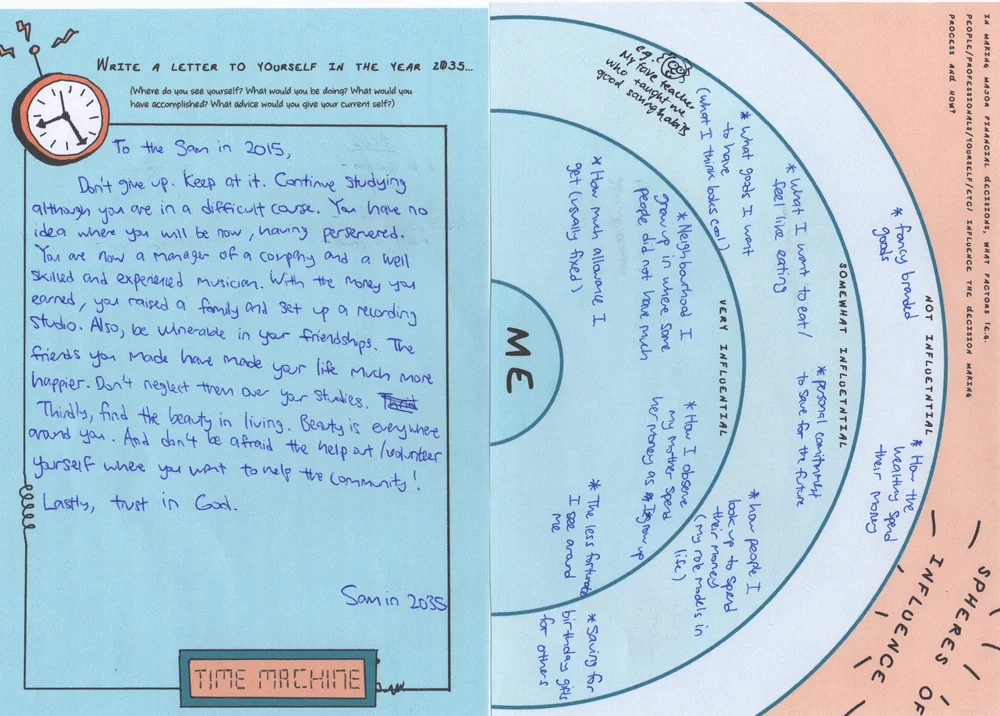 WRITE A LETTER TO YOURSELF IN THE YEAR 2035...
(Where do you see yourself? What would you be doing? What would you
have accomplished? What advice would you give your current self?)
To the Sam in 2015,
Don't give up. Keep at it. Continue studying
although you are in a difficult course. You have no
idea where you will be now, having persevered.
You are now a manager of a company and a well
skilled and experienced musician. With the money you
earned, you raised a family and set up a recording
studio. Also, be vulnerable in your friendships. The
friends you made have made your life much more
happier. Don't neglect them over your studies.
Thirdly, find the beauty in living. Beauty is everywhere
around you. And don't be afraid the help out/volunteer
yourself where you want to help the community!
Lastly, trust in God.
Sam in 2035
TIME MACHINE
IN MAKING MAJOR FINANCIAL DECISIONS, WHAT FACTORS (E.G.
PEOPLE/PROFESSIONALS/YOURSELF/ETC) INFLUENCE THE DECISION MAKING
PROCESS AND HOW?
SPHERES OF
INFLUENCE
NOT INFLUETNTIAL
* fancy branded
goods
* How the
wealthy spend
their money
SOMEWHAT INFLUETNTIAL
e.g.
My fave teacher
who taught me
good saving habits
* What goods I want
to have
(what I think looks cool)
* What I want to eat/
feel like eating
* personal commitment
to save for the future
* how people I
look up to spend
their money
(my role models in
life)
VERY INFLUENTIAL
* Neighbourhood I
grow up in where some
people did not have much
* How much allowance I
get (usually fixed)
* How I observe
my mother spend
her money as I grow up
* The less fortunate
I see around
me
* Saving for
birthday gifts
for others
ME